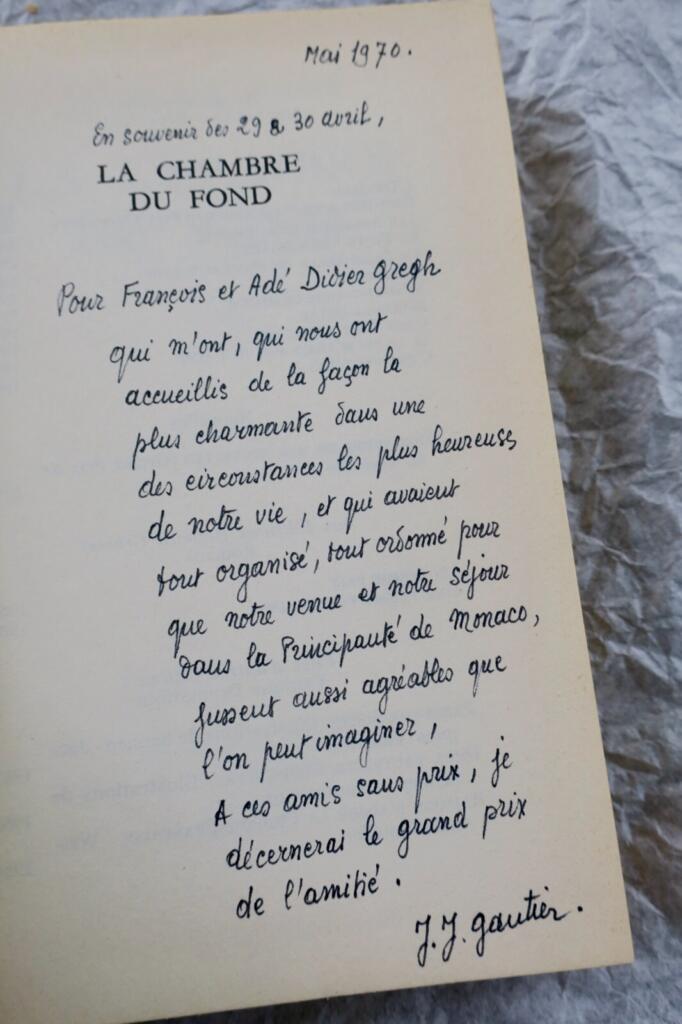 Mai 1970.
En souvenir des 29 & 30 avril,
LA CHAMBRE
DU FOND
Pour François et Adé Didier gregh
qui m'ont, qui nous ont
accueillis de la façon la
plus charmante dans une
des circonstances les plus heureuses
de notre vie, et qui avaient
tout organisé, tout ordonné pour
que notre venue et notre séjour
dans la Principauté de Monaco,
fussent aussi agréables que
l'on peut imaginer,
A ces amis sans prix, je
décernerai le grand prix
de l'amitié.
J.J. gautier.